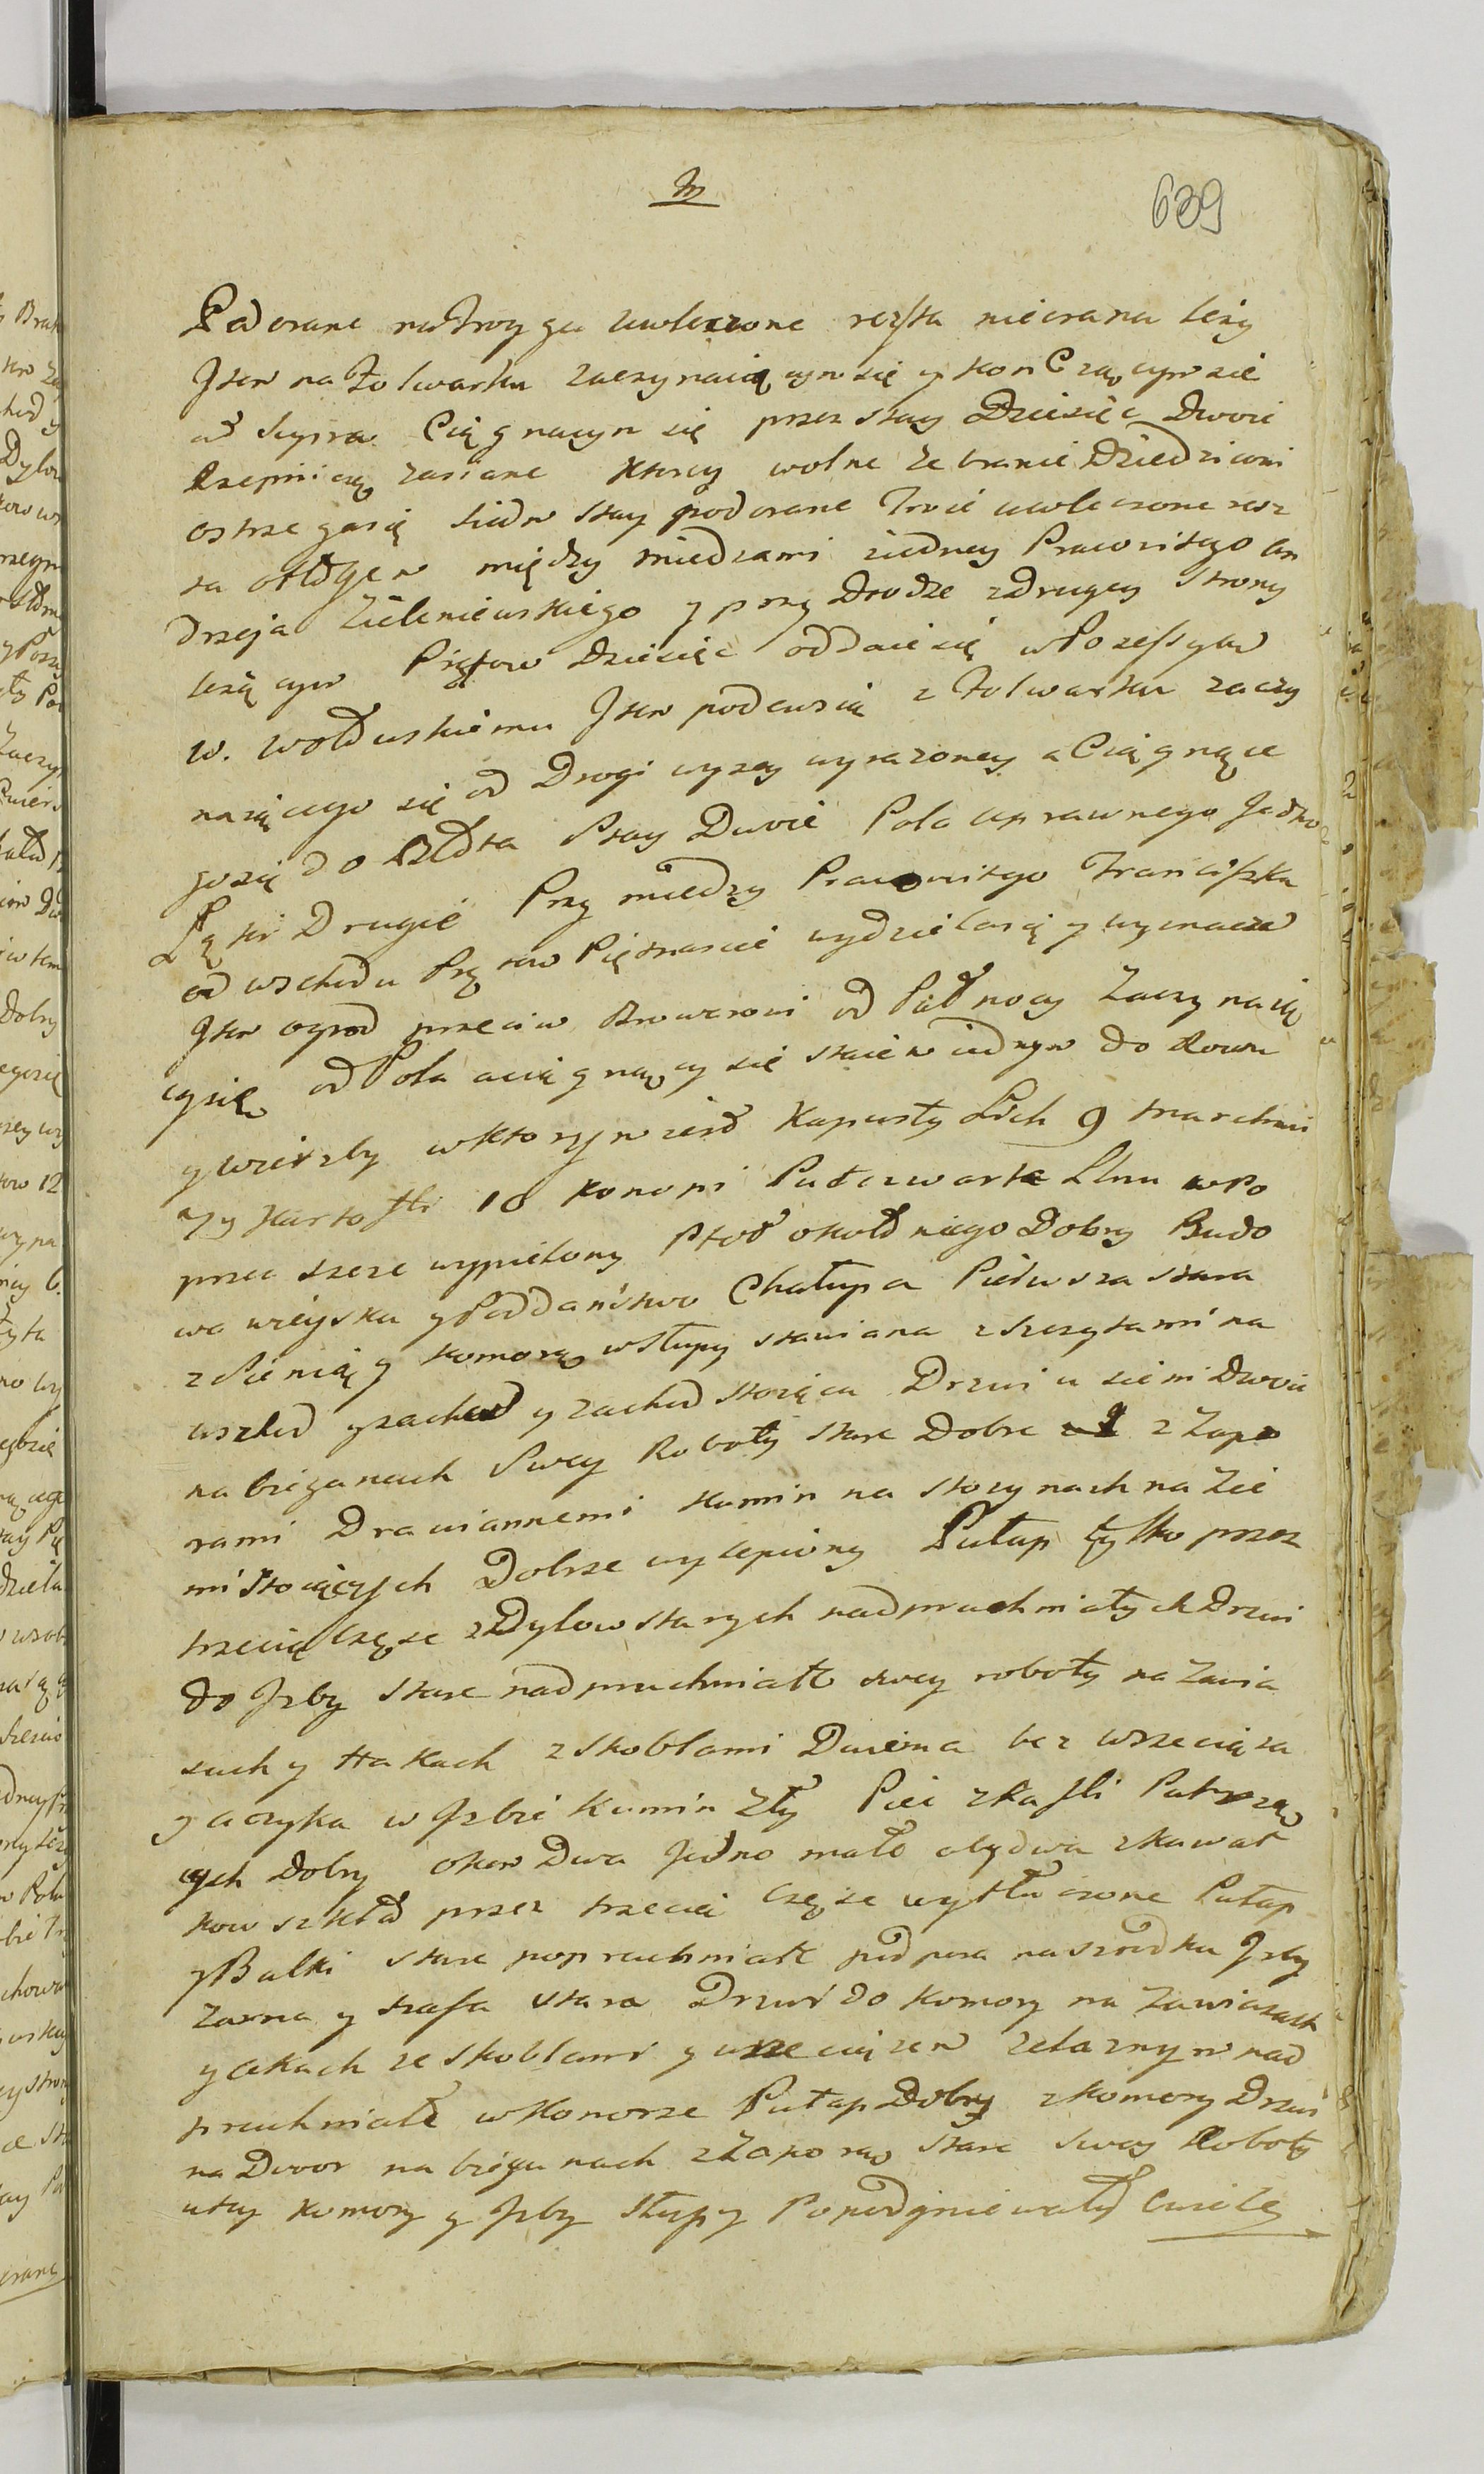 639
Podorane na Troy ga uwleczone reszta nieorana leży
Item na Folwarku zaczynaiącym się y konCzącym sie
Ciągnącym się przez stay Dziesięc Dwoie
Rzepnicą zasiane ktorey wolne zebranie Dziedzicowi
ostrzega się siedm stay podorane Troie uwleczone resz
ta odłogem między miedzami iedney Prawnitego An
drzeja Zieleniewskiego y przy Drodze z Drugiey strony
leżącym Prętow Dziesięc oddaie się w Possessyą
W. Wołduskiemu Item pod wsią z Folwarku zaczy
naiącego się od Drogi wyzey wyrazoney a Ciągnące
go się do stay Dwoie Pola uprawnego Jedno
Łąki Drugie Przy miedzy Prawnitego Franciszka
od wschodu Prętow Piętnascie wydziela się y wyznacza
Item ogrod przeciw Browarowi od Pułnocy Zaczynaią
cy się od Pola a ciągnący się staiem iednym do Rowu
y wierzby w ktorym iest Kapusty Lich 9 marchwi
y Kartofli 18 konopi Pułczwarta Lnu w Po
przecz szesc wypielony Płot okołniego Dobry Budo
wa wieyska y Poddaństwo Chałupa Pierwsza stara
z Sienią y komorą w słupy stawiana z szczytami na
wschod y zachod y zachod stoiąca Drzwi u sieni Dwoie
na bieganach Swey Roboty stare Dobre z Zapo
rami Drewiannemi komin na stocynach na Zie
mi stoiących Dobrze wylepiony Pułap tylko przez
trzecią Częsc z Dylow starych nadpruchniałych Drzwi
do Izby stare nadpruchniałe swey roboty na Zawia
sach y Hakach z skoblami Dwiema bez wrzeciąza
y aczyka w Izbie Komin Zły Piec z kafli Patrzą
cych Dobry okna Dwa Jedno małe obydwa z kawał
kow szkład przez trzecią Częsc wytłuczone Pułap
y Balki stare popruchniałe podpora na szrodku Izby
Zarna y szafa stara Drzwi do komory na Zawiasach
y cekach ze skoblami y wrzeciązem zelaznym nad
pruchniałe w komorze Pułap Dobry z komory Drzwi
na Dwor na biegunach z Zaporą stare swey Roboty
u tey komory y Izby słupy Ponadgniewały Cwiele